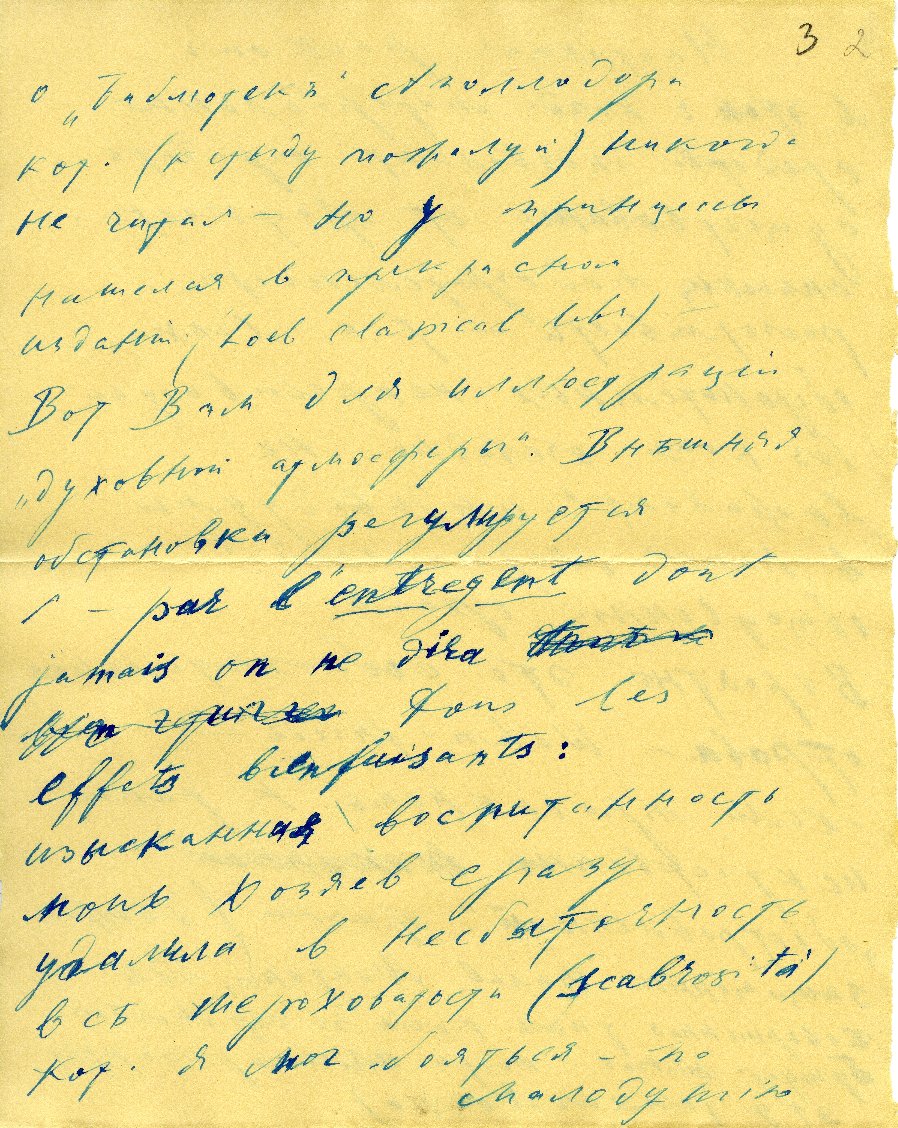 3 2
о „Библiотекѣ" Аполлодора
кот. (к стыду пожалуй) никогда
не читал – но у принцессы
нашелся в прекрасном
изданiи (Loeb classical libr)
Вот Вам для иллюстрацiи
„духовной атмосферы". Внѣшняя
обстановка регулируется
– par l'entregent dont
jamais on ne dira
tous les
effets bienfaisants:
изысканная воспитанность
моих хозяев сразу
удалила в несбыточность
всѣ шероховатости (scabrosità)
кот. я мог бояться – по
малодушiю